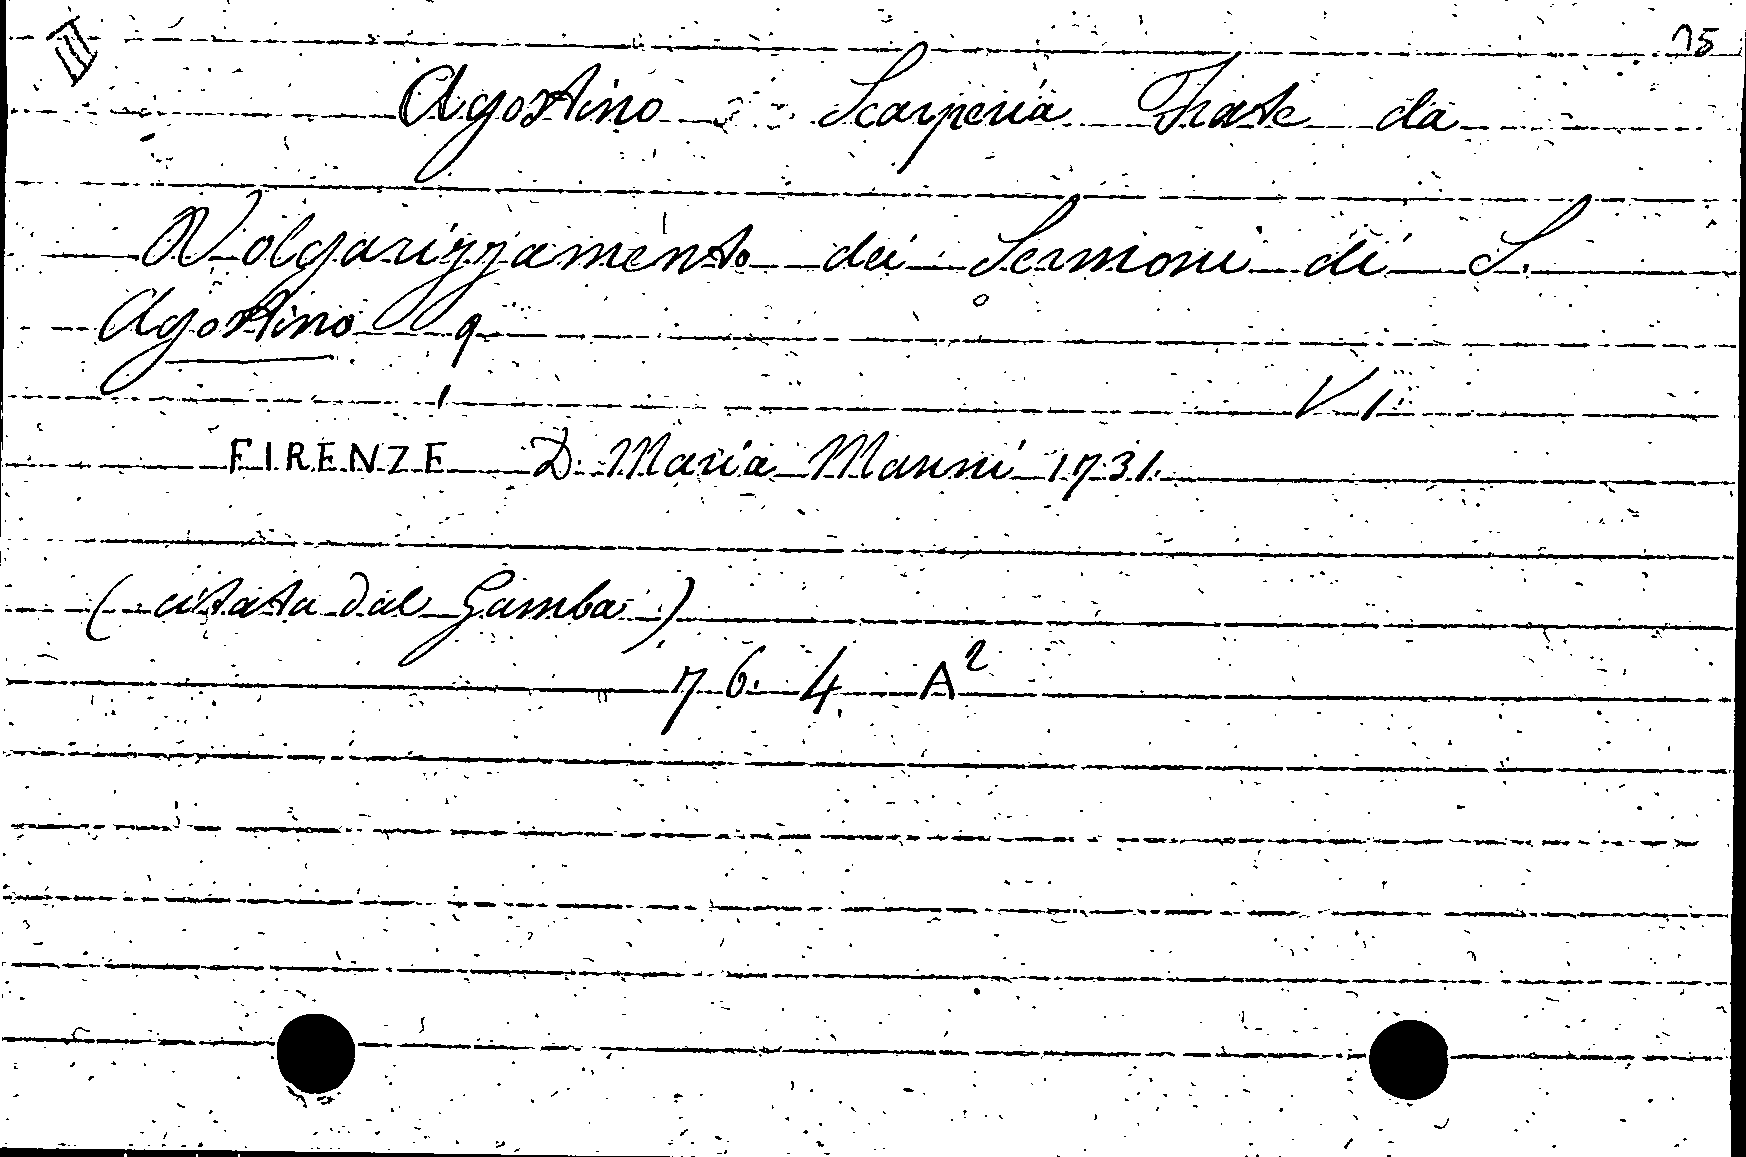 III 75
Agostino Scarperia Frate da
Volgarizzamento dei Sermoni di S.
Agostino
V. 1.
FIRENZE D. Maria Manni 1731.
(citata dal Gamba)
76. 4 A²